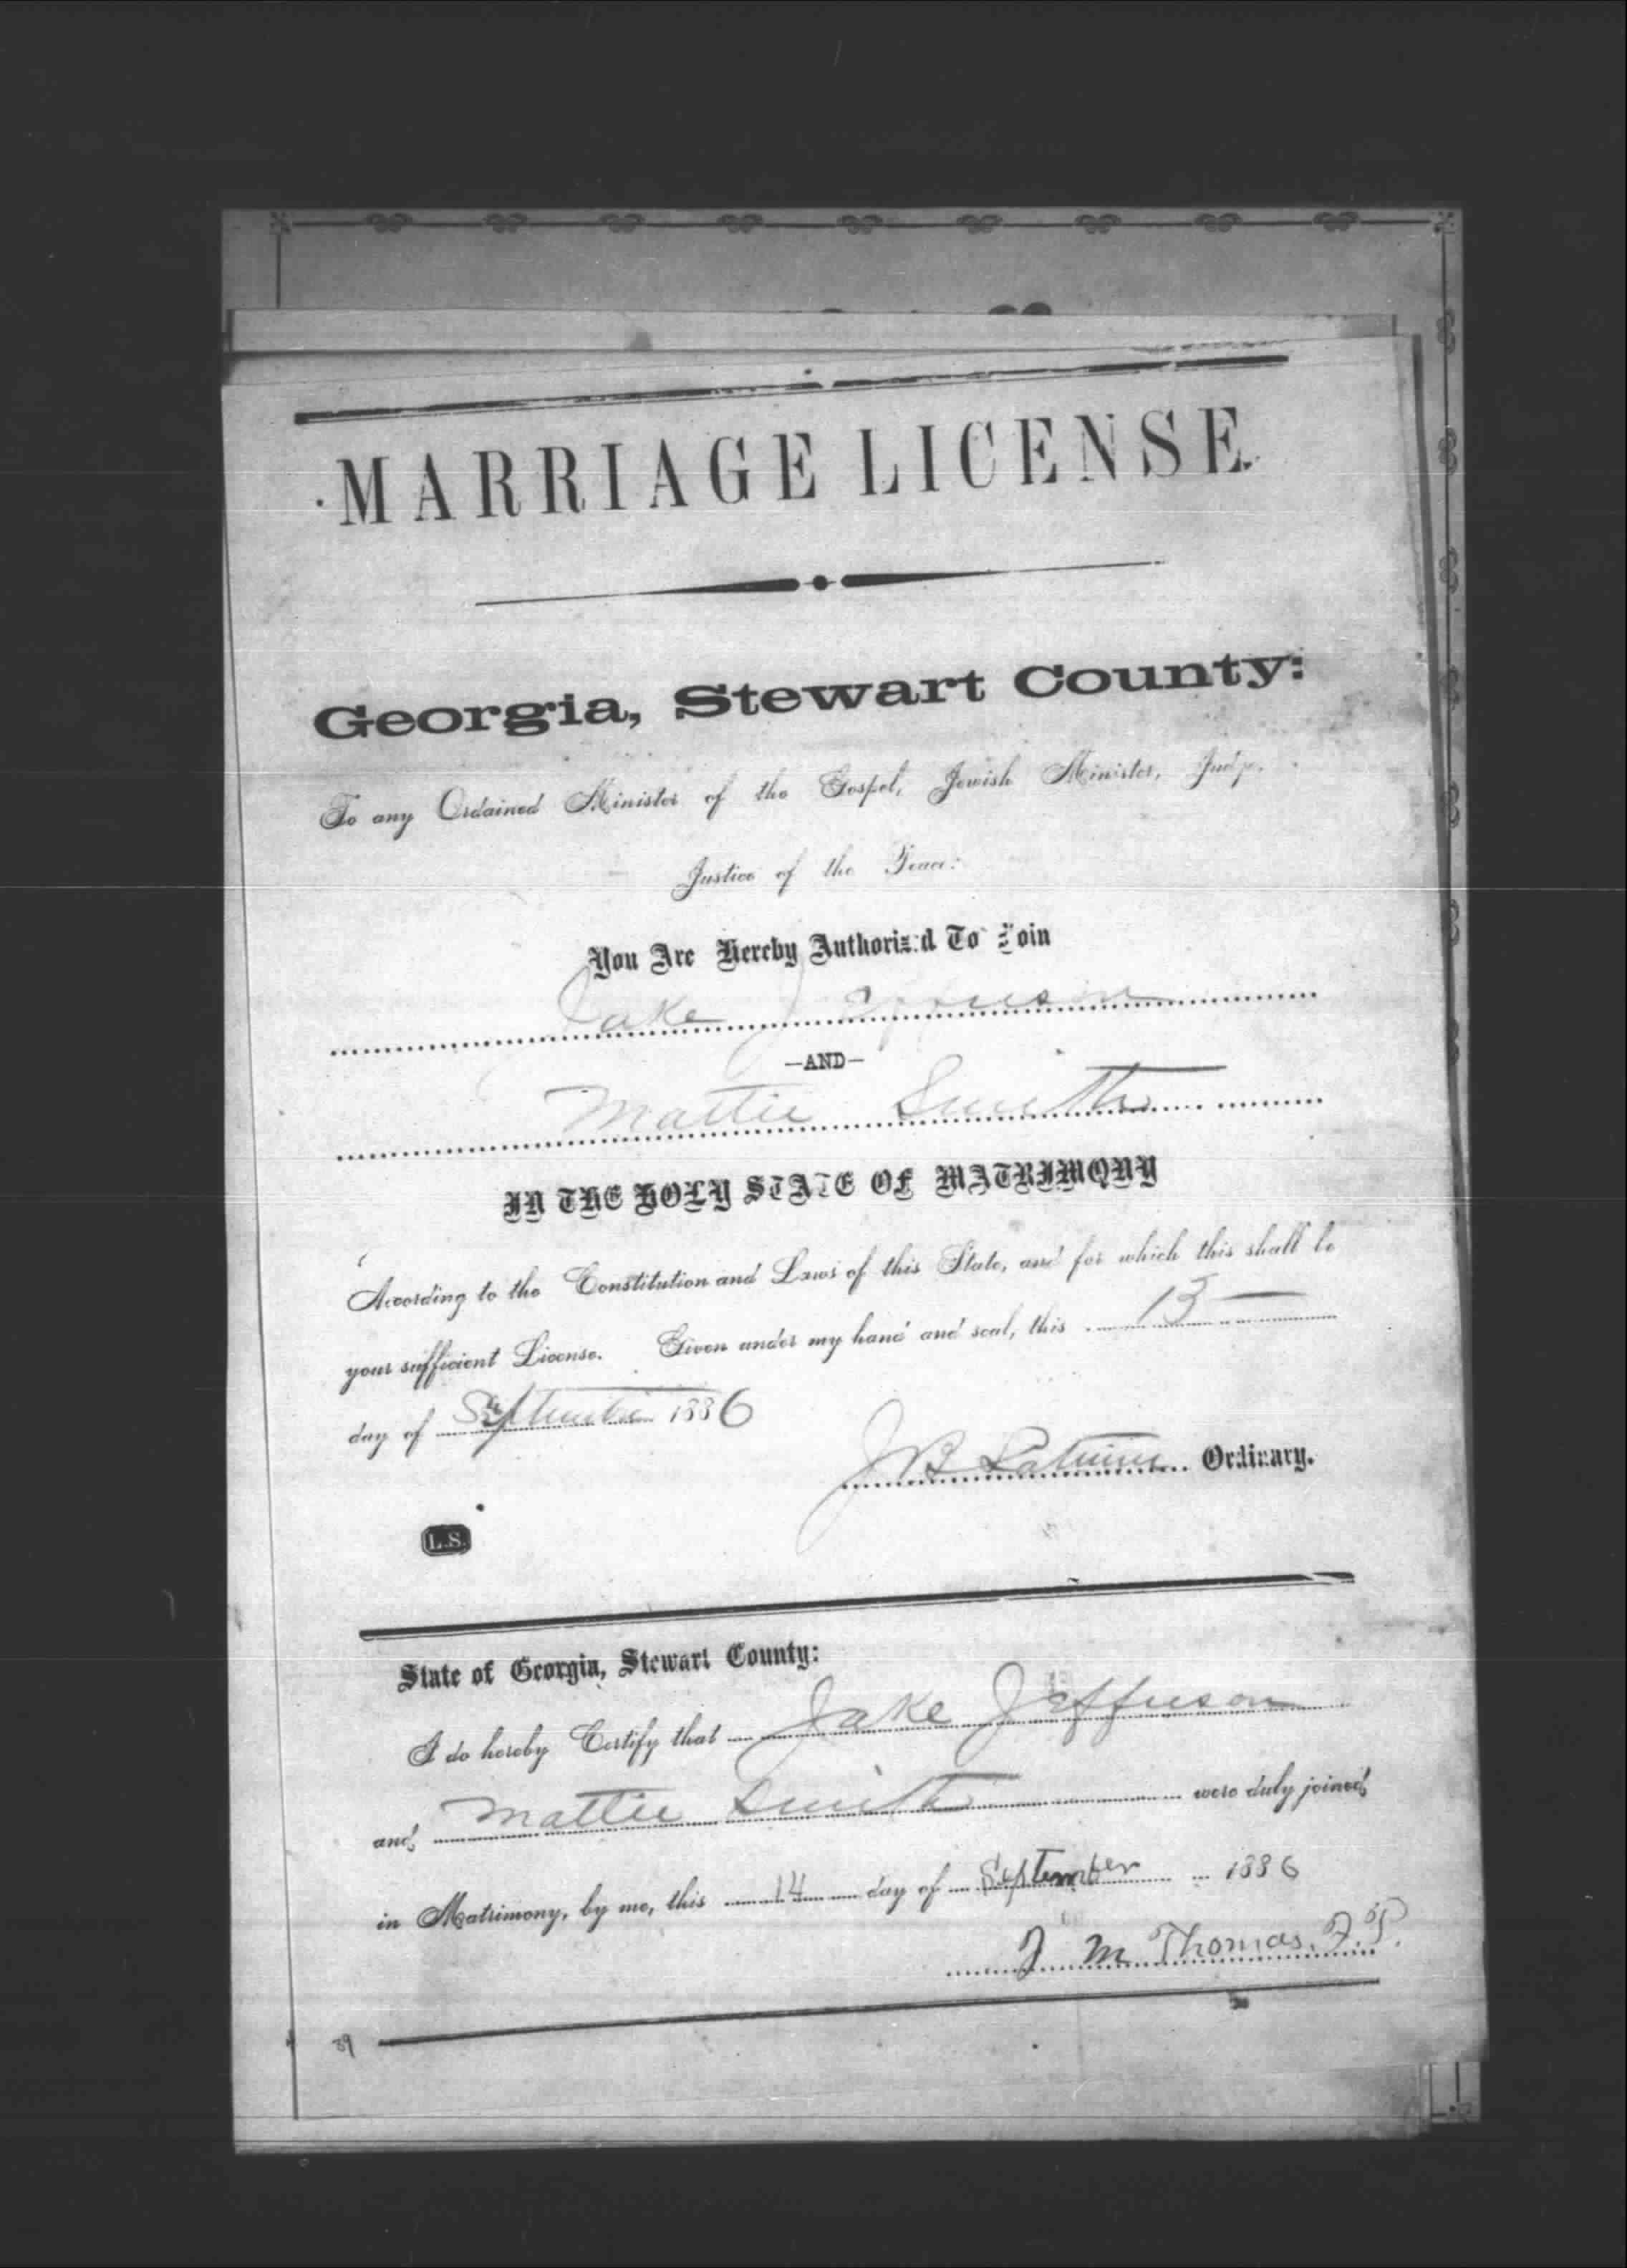 MARRIAGE LICENSE
Georgia, Stewart County:
To any Ordained Minister of the Gospel, Jewish Minister, Judge,
Justice of the Peace:
You Are Hereby Authoriz:d To Join
Jake Jefferson
—AND—
Mattie Smith
IN THE HOLY STATE OF MATRIMONY
According to the Constitution and Laws of this State, and for which this shall be
your sufficient License. Given under my hand and seal, this 13
day of September 1886
J B Latimer Ordinary.
L.S.
State of Georgia, Stewart County:
I do hereby Certify that Jake Jefferson
and Mattie Smith were duly joined
in Matrimony, by me, this 14 day of September 1886
J M Thomas. J.P.
39